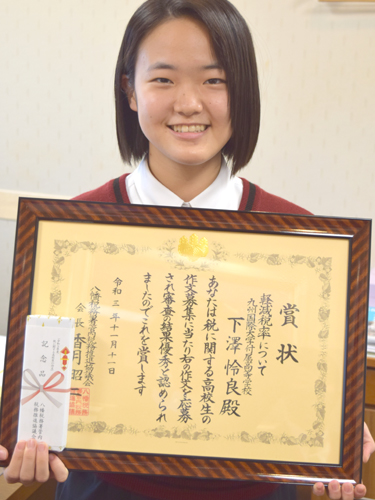 賞状
軽減税率について
九州国際大学付属高等学校
下澤怜良殿
あなたは税に関する高校生の
作文募集に当たり右の作文を応募
され審査の結果優秀と認められ
ましたのでこれを賞します
令和三年十一月十一日
会長香月昭一
記念品